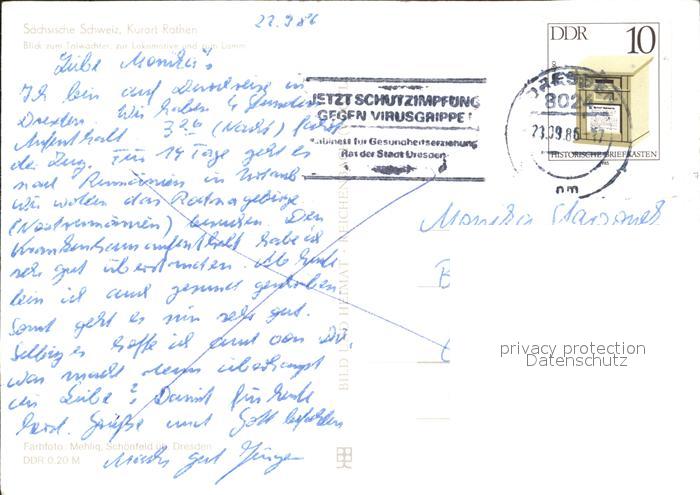 22.9.86
Sächsische Schweiz, Kurort Rathen
Blick zum Talwächter, zur Lokomotive und zum Lamm
Liebe Monika!
Ich bin auf Durchreise in
Dresden. Wir haben 4 Stunden
Aufenthalt 3 26 (Nacht) fährt
der Zug. Für 14 Tage geht es
nach Rumänien in Urlaub
wir wollen das Rodnagebirge
(Nordrumänien) besuchen. Den
Krankenhausaufenthalt habe ich
sehr gut überstanden. Ab heute
bin ich auch gesund geschrieben
Sonst geht es mir sehr gut.
Selbiges hoffe ich auch von Dir.
was macht denn überhaupt
die Liebe? Damit für heute
herzl. Grüße und Gott befohlen
Machs gut Jürgen
Farbfoto: Mehliq, Schönfeld üb. Dresden
DDR 0,20 M
BILD UND HEIMAT REICHEN
JETZT SCHUTZIMPFUNG
GEGEN VIRUSGRIPPE!
Kabinett für Gesundheitserziehung
Rat der Stadt Dresden
DRESDEN
802
23.09.86
nm
DDR 10
HISTORISCHE BRIEFKASTEN
Monika
privacy protection
Datenschutz